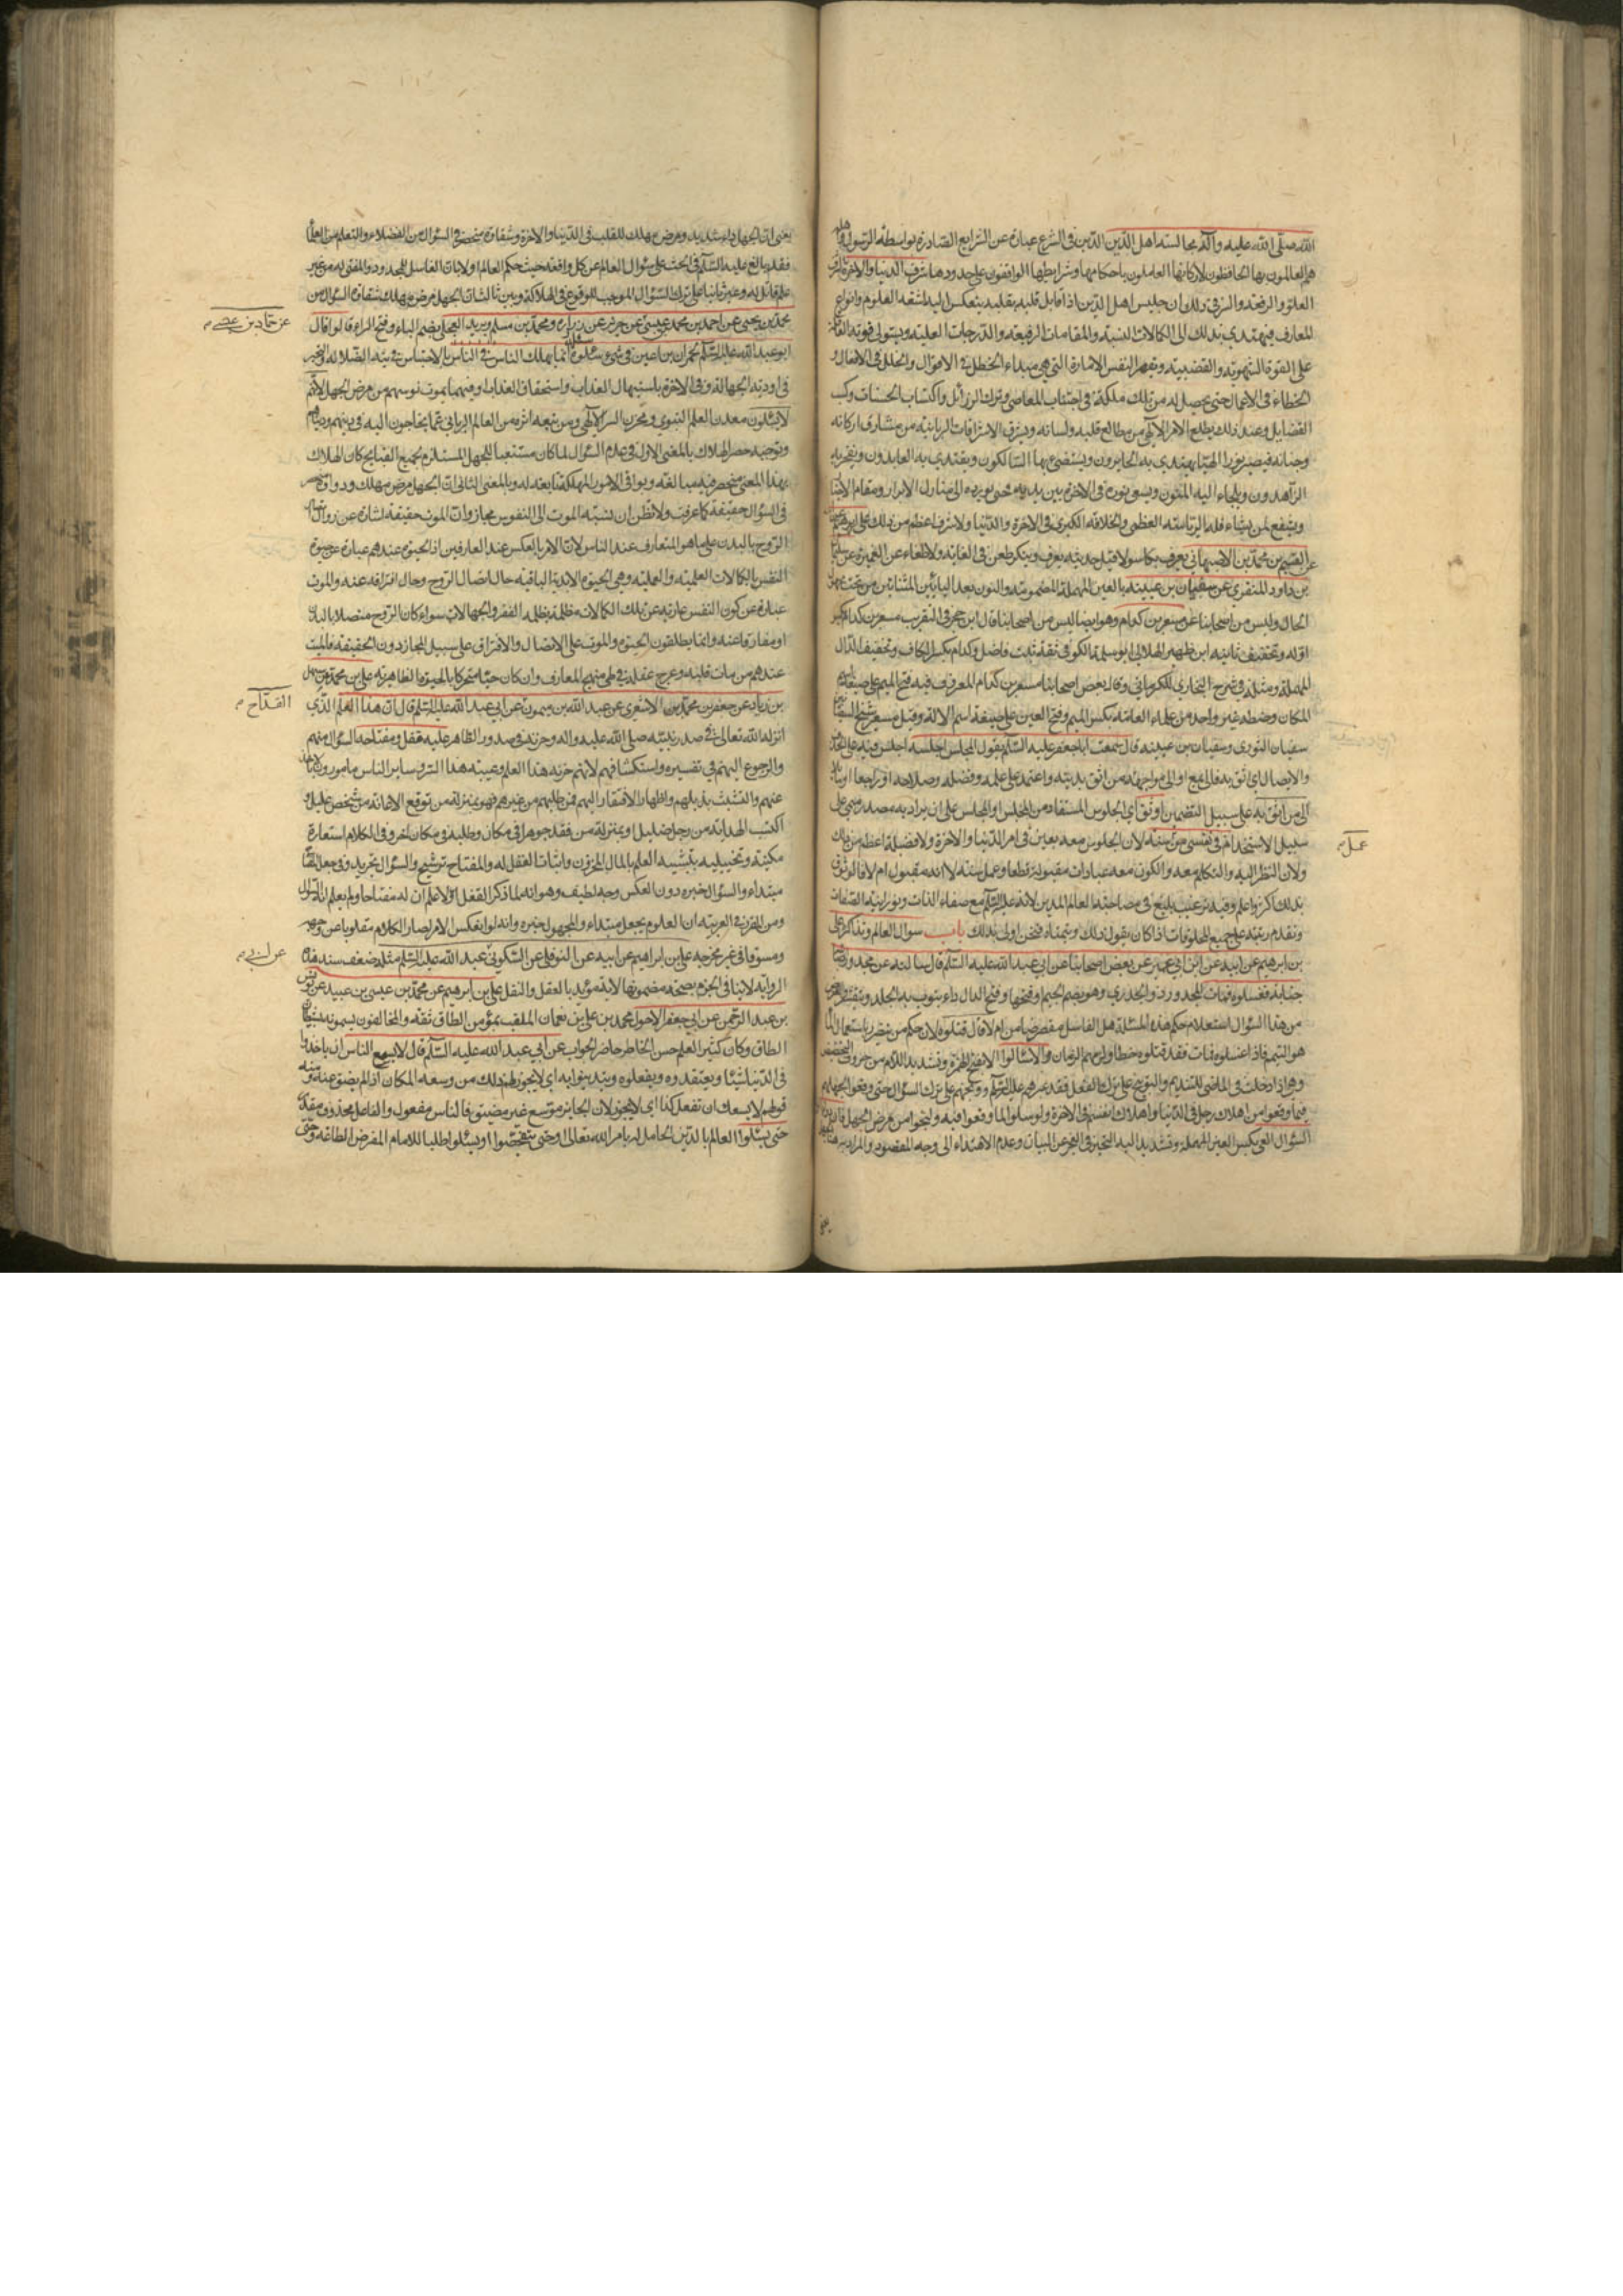 الله صلى الله عليه وآله مجالسة اهل الدين الدين في الشرع عبارة عن الشرايع الصادرة بواسطة الرسول
هم العالمون بها الحافظون لاركانها العاملون باحكامها وشرايطها الواقفون على حدودها شرف الدنيا والآخرة
العلو والرفعة والسر في ذلك ان جليس اهل الدين اذا قابل قلبه بقلبه ينعكس اليه اشعة العلوم وانواع
المعارف فيهتدي بذلك الى الكمالات النسبة والمقامات الرفيعة والدرجات العلية ويستولي قوته
على القوة الشهوية والغضبية ويقهر النفس الامارة التي هي مبداء الخطل في الاقوال والخلل في الافعال و
الخطاء في الاعمال حتى يحصل له من تلك ملكة في اجتناب المعاصي وترك الرزائل واكتساب الحسنات وكسب
الفضايل وعند ذلك يطلع الامر الآلهي من مطالع قلبه ولسانه ويشرق الاشراقات الربانية من مشارق اركانه
وجنانه فيصير نورا الهيا يهتدي به الحايرون ويستضئ بها السالكون ويقتدي به العابدون ويفخر به
الزاهدون ويلجاء اليه المتقون ويسعى نوره في الآخرة بين يديه حتى يورده الى منازل الابرار ومقام
ويشفع لمن يشاء فله الرياسة العظمى والخلافة الكبرى في الآخرة والدنيا ولا شرف اعظم من ذلك علي بن ابرهيم
عن القسم بن محمد بن الاصبهاني يعرف بكاسولا قيل حديثه يعرف وينكر طعن في الغابة ولا عن
بن داود المنقري عن سفيان بن عيينة بالعين المهملة المضمومة والنون بعد اليائين المثناتين من تحت
الحال وليس من اصحابنا عن مسعر بن كدام وهو ايضا ليس من اصحابنا قال ابن حجر في التقريب مسعر بن كدام بكسر
اوله وتخفيف ثانيه ابن ظهير الهلالي ابو سلمة الكوفي ثقة ثبت فاضل وكدام بكسر الكاف وتخفيف الدال
المهملة ومثله في شرح البخاري للكرماني وقال بعض اصحابنا مسعر بن كدام المعروف فيه فتح الميم على صيغة
المكان وضبطه غير واحد من علماء العامة بكسر الميم وفتح العين على صيغة اسم الالة وقيل مسعر شيخ
سفيان الثوري وسفيان بن عيينة قال سمعت ابا جعفر عليه السلام يقول لمجلس اجلسه
والاتصال اي اثق به
الى من اثق به على سبيل التضمين اوثق اي الجلوس المستفاد من المجلس او المجلس على ان يراد به مصدر ميمي على
سبيل الاستخدام في نفسي من سنة لان الجلوس معه يعين في امر الدنيا والآخرة ولا فضيلة اعظم من ذلك
عمل
ولان النظر اليه والتكلم معه والكون معه عبادات مقبولة قطعا وعمل سنة لا انه مقبول ام لا
بذلك اكثر واعلم وفيه ترغيب بليغ في مصاحبة العالم المدين لانه عليه السلام مع صفاء الذات ونورانية الصفات
وتقدم رتبته على جميع المخلوقات اذا كان يقول ذلك ويتمناه فنحن اولى بذلك باب سوال العالم وتذاكره علي
بن ابرهيم عن ابيه عن ابن ابي عمير عن بعض اصحابنا عن ابي عبد الله عليه السلام قال سالته عن مجدور
جنابة فغسلوه فمات المجدور ذو الجدري وهو بضم الجيم وفتحها وفتح الدال داء
من هذا السؤال استعلام حكم هذه المسئلة هل الغاسل مقصر ضامن ام لا قال قتلوه لان حكم من يتضرر باستعمال الماء
هو التيمم فاذا غسلوه فمات فقد قتلوه خطاء الا سالوا الا بفتح الهمزة وتشديد اللام من حروف التحضيض
وهي اذا دخلت في الماضي للتنديم والتوبيخ على ترك الفعل فقد عيرهم عليه السلام ووبخهم على ترك السؤال حتى وقعوا لجهلهم
فيما وقعوا من اهلاك رجل في الدنيا واهلاك انفسهم في الآخرة ولو سالوا لما وقعوا فيه ولنجوا من مرض الجهل
السؤال العي بكسر العين المهملة وتشديد الياء التحير في العجز عن البيان وعدم الاهتداء الى وجه المقصود والمراد
يعني
يعني ان الجهل داء شديد ومرض مهلك للقلب في الدنيا والآخرة وشفاؤه منحصر في السؤال من الفضلاء والتعلم من العلماء
فقد بالغ عليه السلام في الحث على سؤال العالم عن كل واقعة حيث حكم العالم اولا بان الغاسل للمجدور والمفتي له من غير
علم قاتل له وعير ثانيا على ترك السؤال الموجب للوقوع في الهلاكة وبين ثالثا ان الجهل مرض مهلك شفاؤه السؤال
محمد بن يحيى عن احمد بن محمد بن عيسى عن حريز عن زرارة ومحمد بن مسلم وبريد العجلي بضم الباء وفتح الراء قالوا قال
عن حماد بن عيسى
ابو عبد الله عليه السلام لحمران بن اعين في شئ سئله انما يهلك الناس
في اودية الجهالة وفي الآخرة باستيهال العذاب واستحقاق العقاب او فيهما بموت نفوسهم من مرض الجهل لانهم
لا يسئلون معدن العلم النبوي ومخزن السر الآلهي ومن يتبع اثره من العالم الرباني عما يحتاجون اليه في دينهم
وتوجيه حصر الهلاك بالمعنى الاول في عدم السؤال لما كان مستتبعا للجهل المستلزم لجميع القبايح كان الهلاك
بهذا المعنى منحصر فيه مبالغة وبواقي الامور المهلكة تابعة له وبالمعنى الثاني ان الجهل مرض مهلك ودواؤه
في السؤال حقيقة كما عرفت ولا تظن ان نسبة الموت الى النفوس مجاز وان الموت حقيقة لشارة عن زوال
الروح بالبدن على ما هو المتعارف عند الناس لان الامر بالعكس عند العارفين اذ الحيوة عندهم عبارة عن حيوة
النفس بالكمالات العلمية والعملية وهي الحيوة الابدية الباقية حال اتصال الروح وحال افتراقه عنه والموت
عبارة عن كون النفس عارية عن تلك الكمالات مظلمة بظلمة الفقر والجهالات سواء كان الروح متصلا بالبدن
او مفارقا عنه وانما يطلقون الحيوة والموت على الاتصال والافتراق على سبيل المجاز دون الحقيقة فالميت
عندهم من مات قلبه وعرج عقله في طي منهج المعارف وان كان حيا متحركا بالحيوة الظاهرية علي بن محمد عن سهل
بن زياد عن جعفر بن محمد بن الاشعري عن عبد الله بن ميمون عن ابي عبد الله عليه السلام قال ان هذا العلم الذي
القداح
انزله الله تعالى في صدر نبيه صلى الله عليه واله وخزنه في صدور الطاهر عليه قفل ومفتاحه السؤال منهم
والرجوع اليهم في تفسيره واستكشافهم لانهم خزنة هذا العلم وعيبة هذا السر وساير الناس مامورون
عنهم والتشبث بذيلهم واظهار الافتقار اليهم فمن طلبهم من غيرهم فهو بمنزلة من توقع الاعانة من شخص عليل و
اكتسب الهداية من رجل ضليل او بمنزلة من فقد جوهرا في مكان وطلبه في مكان اخر وفي الكلام استعارة
مكنية وتخييلية بتشبيه العلم بالمال المخزون واثبات القفل له والمفتاح ترشيح والسؤال تجريد وفي جعل المفتاح
مبتداء والسؤال خبره دون العكس وجه لطيف وهو انه لما ذكر القفل اولا علم ان له مفتاحا ولم يعلم انه السؤال
ومن المقرر في العربية ان المعلوم يجعل مبتداء والمجهول خبره وانه لو انعكس الامر لصار الكلام مقلوبا عن وجهه
ومسوقا في غير مخرجه علي بن ابراهيم عن ابيه عن النوفلي عن السكوني عبد الله عليه السلام مثله ضعف سند هذه
عن ابي
الرواية لا ينافي الجزم بصحة مضمونها لانه مؤيد بالعقل والنقل علي بن ابرهيم عن محمد بن عيسى بن عبيد عن يونس
بن عبد الرحمن عن ابي جعفر الاحول محمد بن علي بن نعمان الملقب بمؤمن الطاق ثقة والمخالفون يسمونه شيطان
الطاق وكان كثير العلم حسن الخاطر حاضر الجواب عن ابي عبد الله عليه السلام قال لا يسع الناس ان ياخذوا
في الدنيا شيئا ويعتقدوه ويفعلوه ويتدينوا به اي لا يجوز لهم ذلك من وسعه المكان اذا لم يضق عنه ومنه
قولهم لا يسعك ان تفعل كذا اي لا يجوز لان الجايز موسع غير مضيق فالناس مفعول والفاعل محذوف مقدر
حتى يسئلوا العالم بالدين الحامل له بامر الله تعالى او حتى يتفحصوا ويسئلوا طلبا للامام المفترض الطاعة